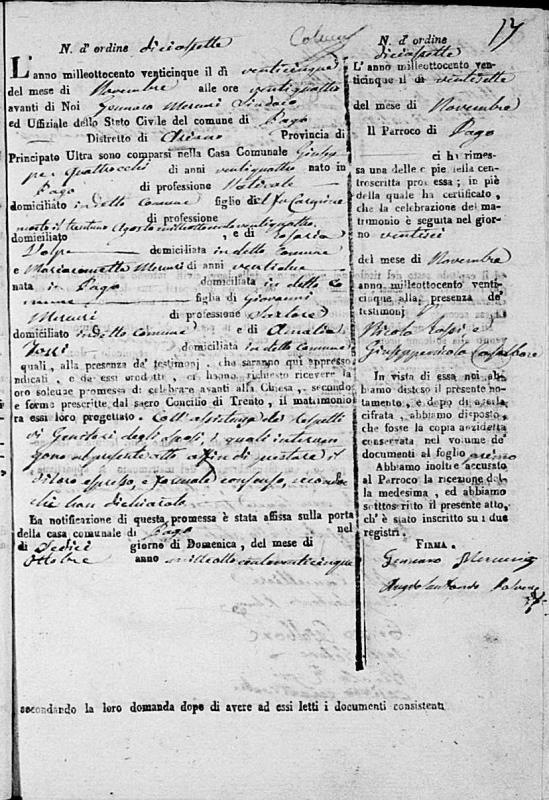 17
N. d'ordine diciassette
L'anno milleottocento venticinque il dì venticinque
del mese di Novembre alle ore ventiquattro
avanti di Noi Gennaro Mercuri Sindaco
ed Uffiziale dello Stato Civile del comune di Pago
Distretto di Provincia di
Principato Ultra sono comparsi nella Casa Comunale Giusep
pe Quattrocchi di anni ventiquattro nato in
Pago di professione
domiciliato in detto Comune figlio del fu Carmine
morto il trentuno Agosto milleottocentoventiquattro
di professione
domiciliato e di
Volpe domiciliata in detto Comune
e Mariantonetta Mercuri di anni ventidue
nata in Pago domiciliata in detto Co
mune figlia di Giovanni
Mercuri di professione Sartore
domiciliato in detto Comune e di Amalia
Tossi domiciliata in detto Comune
quali, alla presenza de' testimonj, che saranno qui appresso
indicati, e da essi prodotti, ci hanno richiesto ricevere la
loro solenne promessa di celebrare avanti alla Chiesa, secondo
e forme prescritte dal sacro Concilio di Trento, il matrimonio
tra essi loro progettato. Coll'assistenza de' rispetti
vi Genitori degli sposi, i quali interven
gono al presente atto affin di prestare il
di loro espresso, e formale consenso,
han dichiarato
La notificazione di questa promessa è stata affissa sulla porta
della casa comunale di Pago nel
dì Sedici giorno di Domenica, del mese di
Ottobre anno milleottocentoventicinque
secondando la loro domanda dopo di avere ad essi letti i documenti consistenti
N. d'ordine
diciassette
L'anno milleottocento ven-
ticinque il dì ventisette
del mese di Novembre
Il Parroco di Pago
ci ha rimes-
sa una delle copie della con-
troscritta promessa; in piè
della quale ha certificato,
che la celebrazione del ma-
trimonio è seguita nel gior-
no ventisei
del mese di Novembre
anno milleottocento venti-
cinque alla presenza de'
testimonj
Nicola Rossi e
Giuseppenicola
In vista di essa noi ab-
biamo disteso il presente no-
tamento, e dopo di averla
cifrata, abbiamo disposto,
che fosse la copia anzidetta
conservata nel volume de'
documenti al foglio primo
Abbiamo inoltre accusato
al Parroco la ricezione del-
la medesima, ed abbiamo
sottoscritto il presente atto,
ch'è stato inscritto su i due
registri.
FIRMA.
Gennaro Mercuri